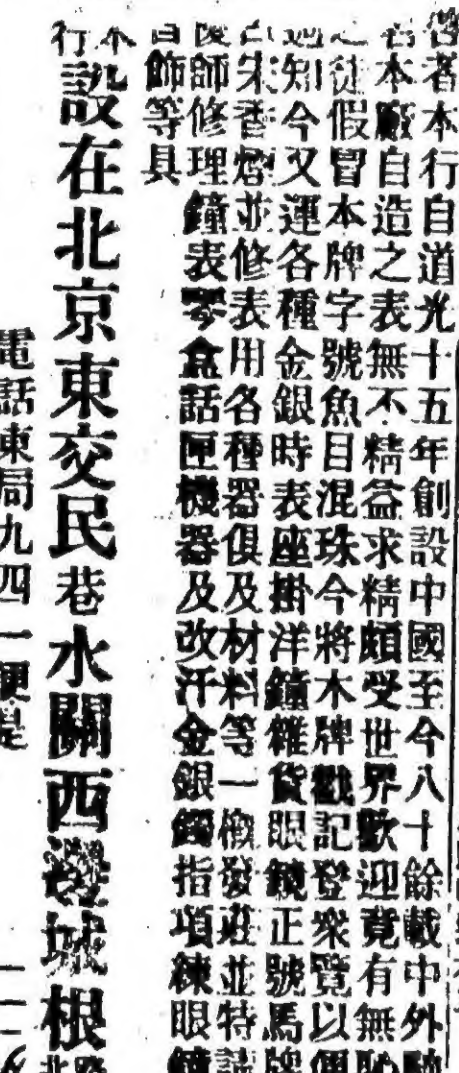 啓者本行自道光十五年創設中國至今八十餘載中外馳
名本廠自造之表無不精益求精頗受世界歡迎竟有無恥
之徒假冒本牌字號魚目混珠今將木牌戳記登衆覽以便
知今又運各種金銀時表座掛洋鐘雜貨眼鏡正號馬牌
宋香燈並修表用各種器俱及材料等一概發莊並特請
師修理鐘表琴盒話匣機器及改汗金銀鐲指項練眼鏡
首飾等具
本行設在北京東交民巷水關西邊城根路北
電話東局九四一便是